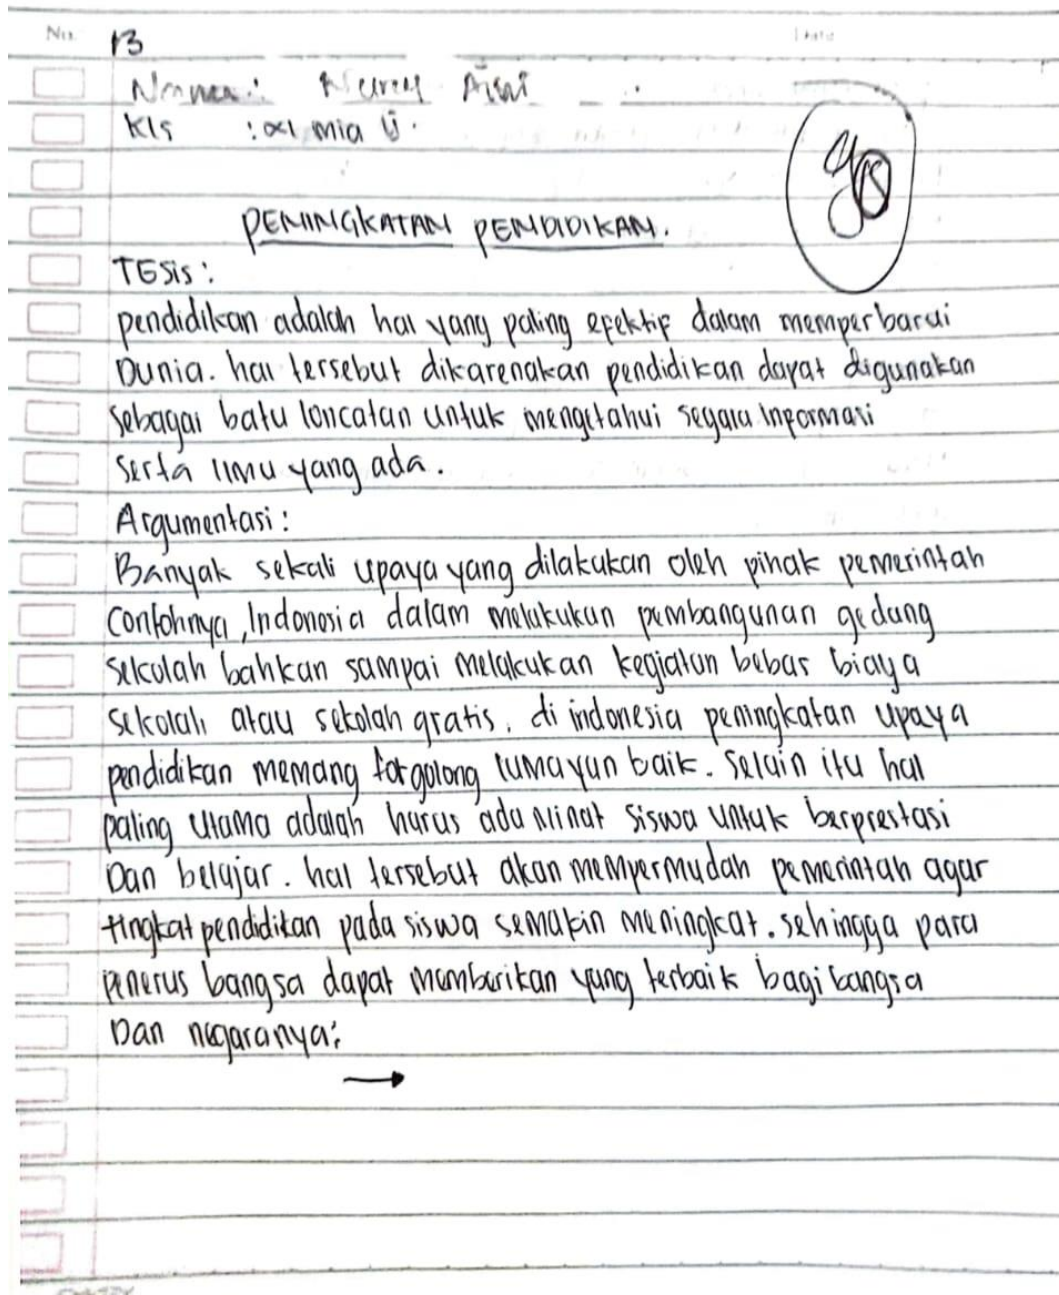 No.
13
Date
Nama : Nurul Aini
Kls : XI mia
PENINGKATAN PENDIDIKAN.
TESis :
pendidikan adalah hal yang paling efektif dalam memperbarui
Dunia. hal tersebut dikarenakan pendidikan dapat digunakan
sebagai batu loncatan untuk mengetahui segala informasi
serta ilmu yang ada.
Argumentasi :
Banyak sekali upaya yang dilakukan oleh pihak pemerintah
Contohnya, Indonesia dalam melakukan pembangunan gedung
sekolah bahkan sampai melakukan kegiatan bebas biaya
sekolah atau sekolah gratis. di indonesia peningkatan upaya
pendidikan memang tergolong lumayan baik. Selain itu hal
paling utama adalah harus ada Minat siswa untuk berprestasi
Dan belajar. hal tersebut akan mempermudah pemerintah agar
tingkat pendidikan pada siswa semakin meningkat. sehingga para
penerus bangsa dapat memberikan yang terbaik bagi bangsa
Dan negaranya.